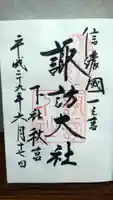 信濃國一之宮
諏訪大社
下社秋宮
平成二十九年六月十七日